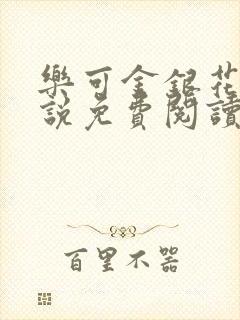 樂可金銀花
說免費閱讀
百里不器